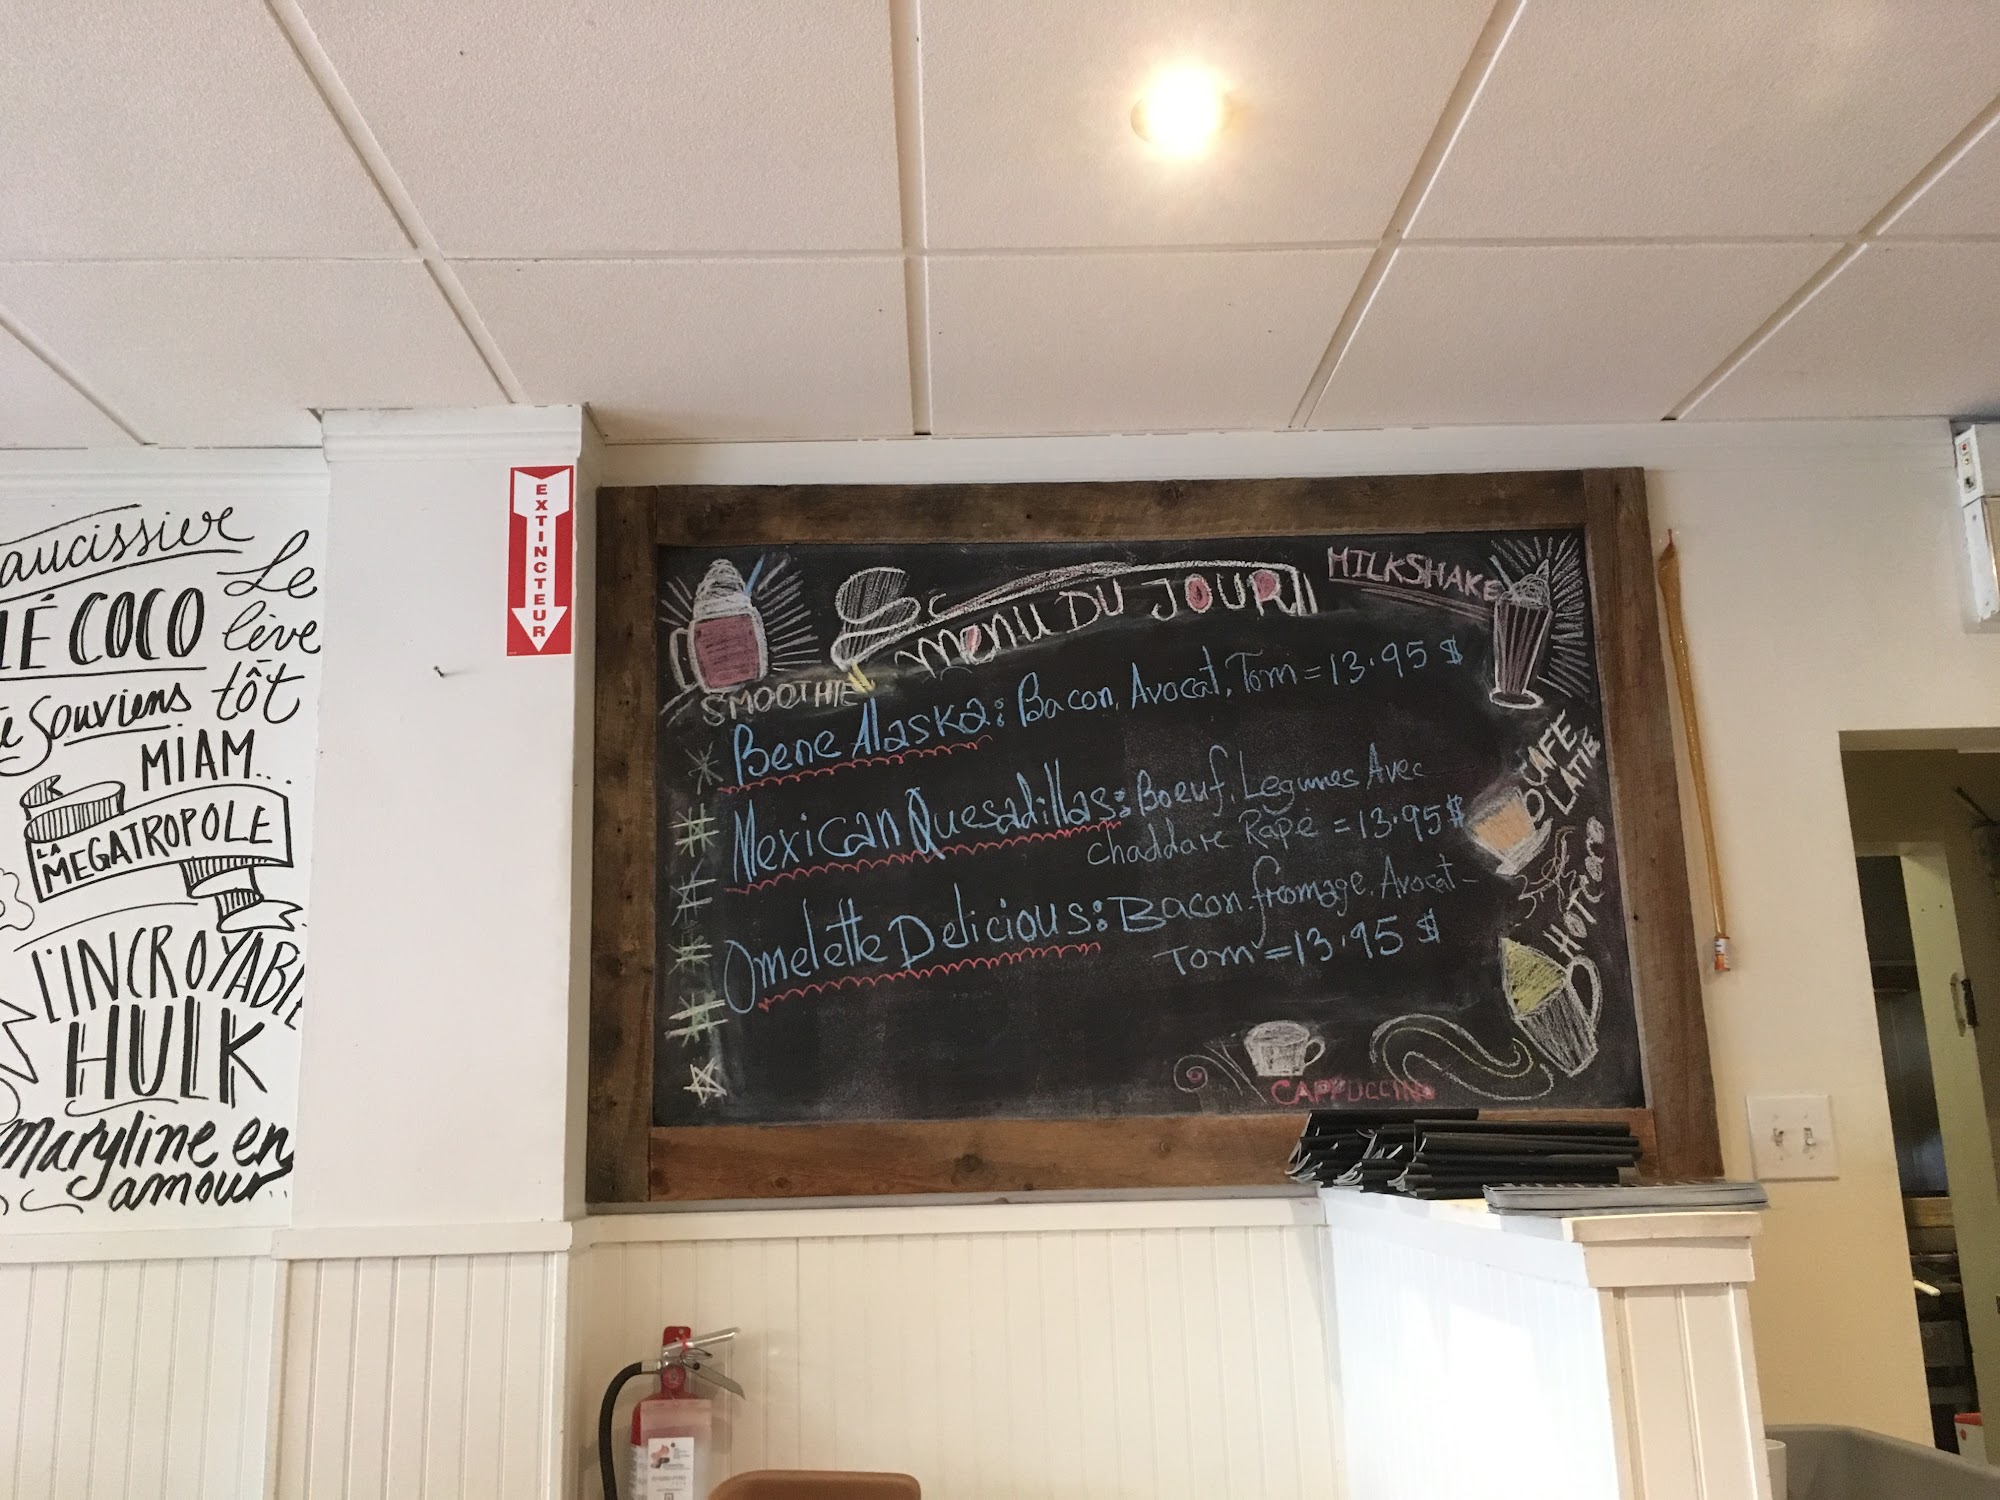 aucissier
LÉ COCO
Le
lève
tôt
Souviens
MIAM...
LA
MEGATROPOLE
L'INCROYABLE
HULK
Maryline en
amour..
EXTINCTEUR
MENU DU JOUR
MILKSHAKE
SMOOTHIE
Bene Alaska: Bacon, Avocat, Tom = 13.95 $
Mexican Quesadillas: Boeuf, Legumes Avec
Chaddare Rapé = 13.95 $
Omelette Delicious: Bacon, fromage, Avocat -
Tom = 13.95 $
CAFE
LATTE
CAPPUCCINO